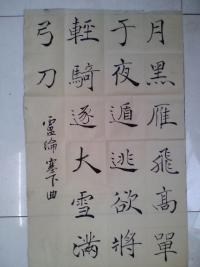 月黑雁飛高單
于夜遁逃欲將
輕騎逐大雪滿
弓刀
盧綸 塞下曲